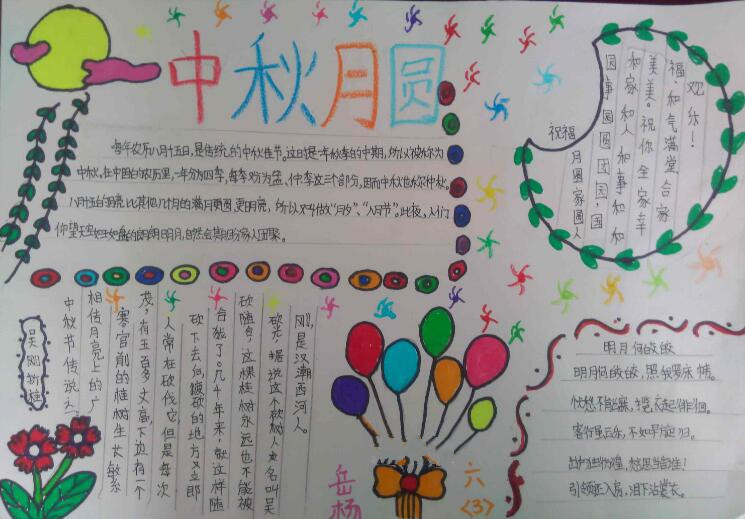 中秋月圆
每年农历八月十五日,是传统的中秋佳节。这日是一年秋季的中期,所以被称为
中秋。在中国的农历里,一年分为四季,每季又分为孟、仲、季三个部分,因而中秋也称仲秋。
八月十五的月亮比其他几个月的满月更圆,更明亮,所以又叫做“月夕”、“八月节”。此夜,人们
仰望天空如玉如盘的朗朗明月,自然会期盼家人团聚。
祝福
月圆家圆人
圆事圆圆团团,国
和家和人和事和和
美美。祝你全家幸
福、和气满堂、合家
欢乐!
吴刚折桂
中秋节传说之二
相传月亮上的广
寒宫前的桂树生长繁
茂,有五百多丈高,下边有一个
人常在砍伐它,但是每次
砍下去
被砍的地方又立即
合拢了。几千年来,就这样随
砍随合,这棵桂树永远也不能被
砍光。据说这个砍树人名叫吴
刚,是汉潮西河人。
明月何皎皎
明月何皎皎,照我罗床帏。
忧愁不能寐,揽衣起徘徊。
客行虽云乐,不如早旋归。
出户独彷徨,愁思当告谁!
引领还入房,泪下沾裳衣。
六
<3>
岳杨